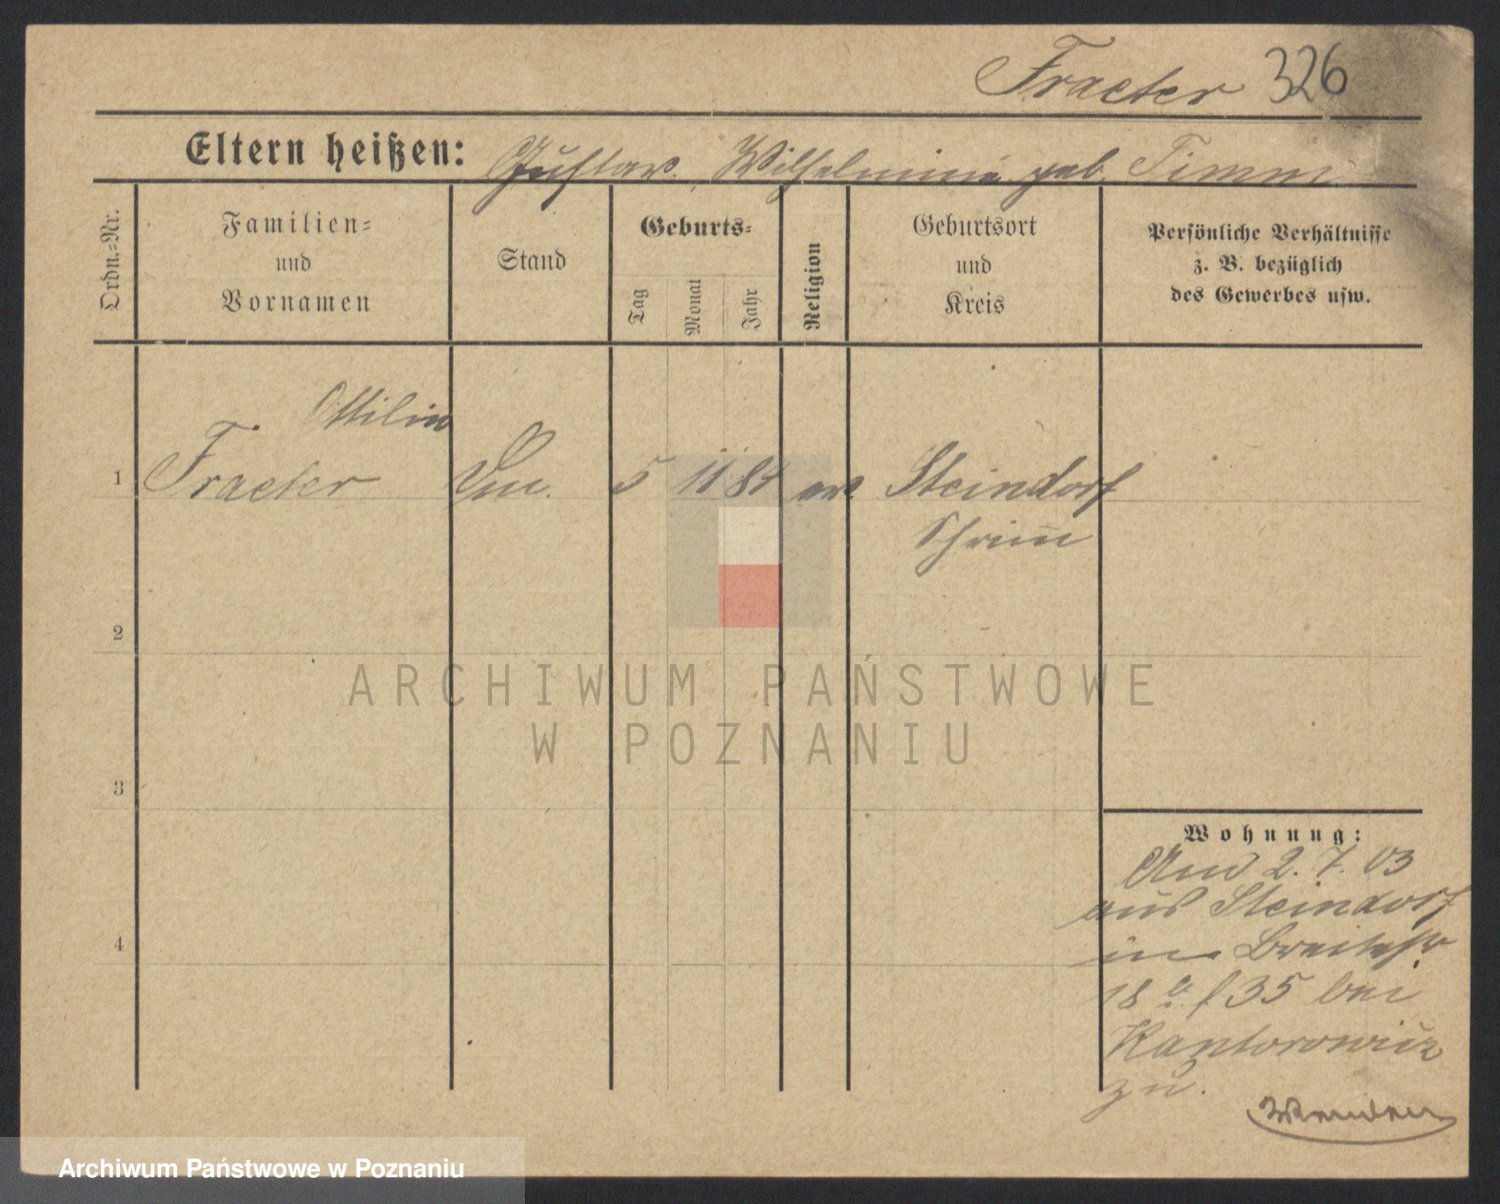 Fraeter 326
Eltern heißen: Gustav. Wilhelmine geb Timm
Ordn.-Nr.
Familien-
und
Vornamen
Stand
Geburts-
Tag
Monat
Jahr
Religion
Geburtsort
und
Kreis
Persönliche Verhältnisse
z. B. bezüglich
des Gewerbes usw.
Ottilie
1 Fraeter 5 11 84 ev Steindorf
Schrimm
2
3
4
Wohnung:
2. 7. 03
aus Steindorf
in Breitestr
18 bei
Kantorowicz
zu.
Wenden
ARCHIWUM PAŃSTWOWE
W POZNANIU
Archiwum Państwowe w Poznaniu